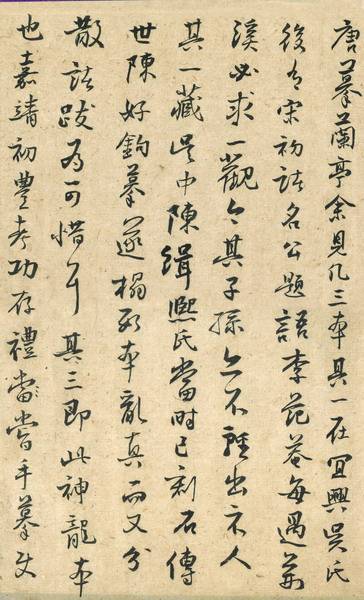 唐摹蘭亭余見凡三本其一在宜興吳氏
後有宋初諸名公題語李范菴每過荊
溪必求一觀今其子孫亦不輕出示人
其一藏吳中陳緝熙氏當時已刻石傳
世陳好鈎摹遂搨數本亂真而又分
散諸跋為可惜耳其三即此神龍本
也嘉靖初豐考功存禮嘗手摹使